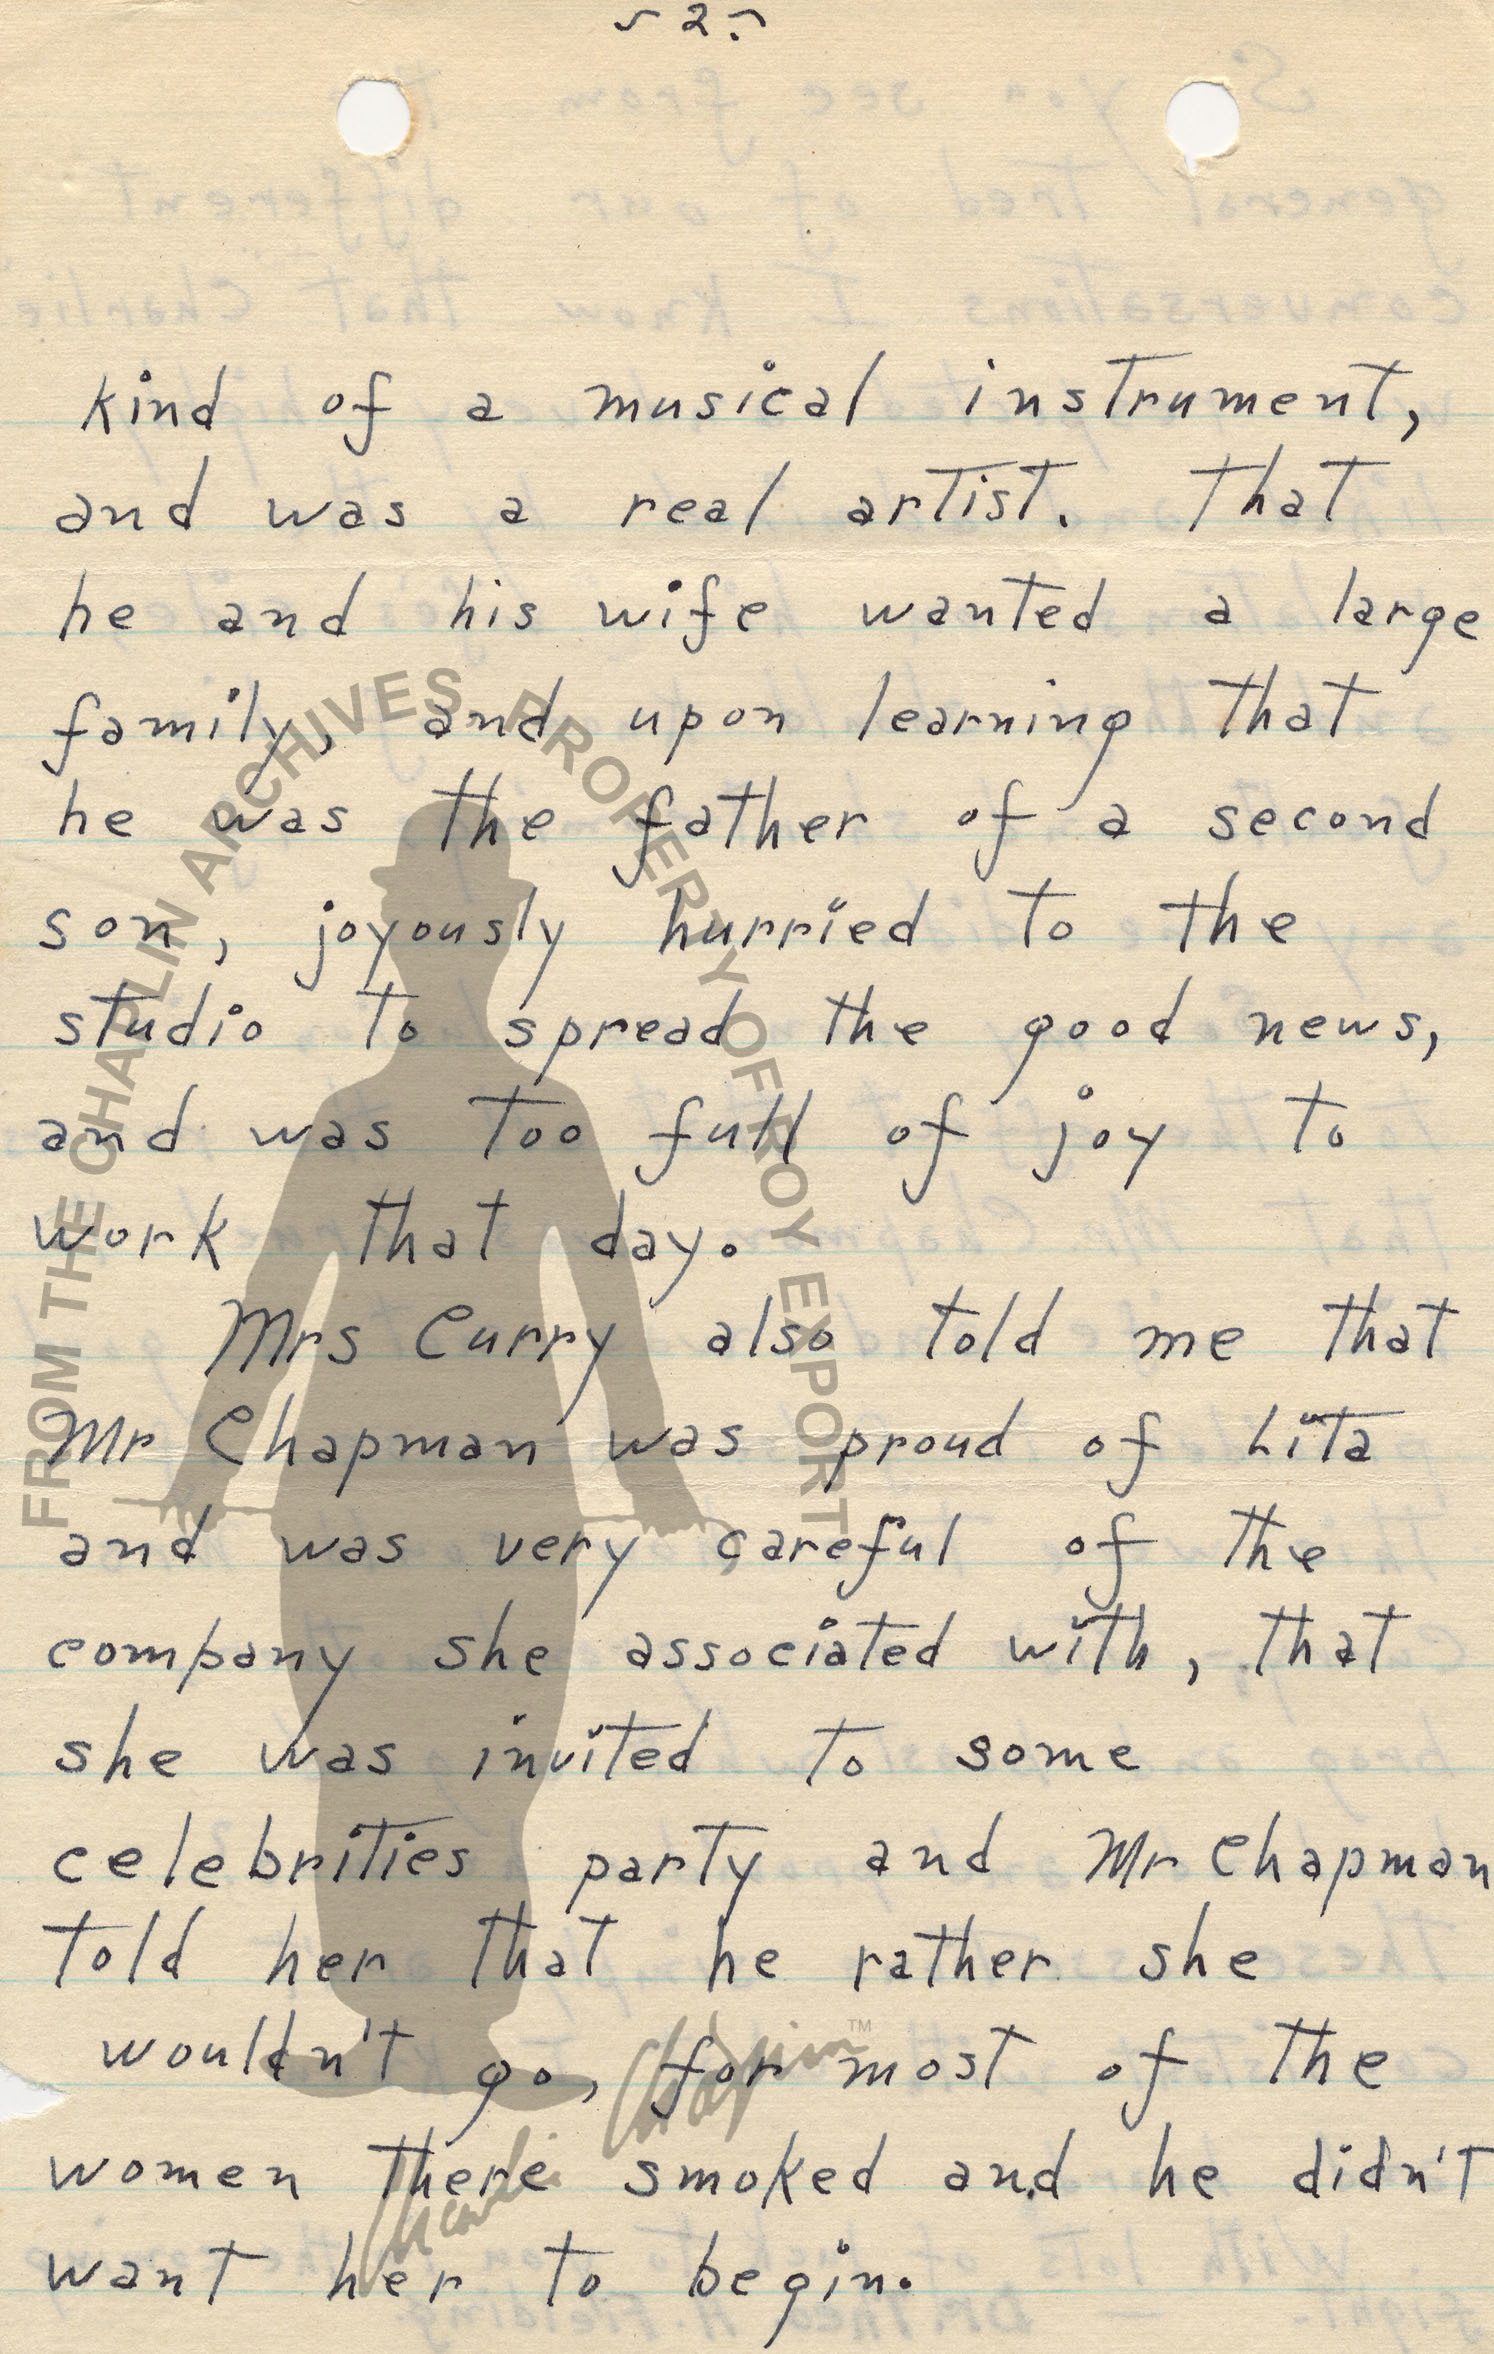 ~ 2 ~
kind of a musical instrument,
and was a real artist. That
he and his wife wanted a large
family, and upon learning that
he was the father of a second
son, joyously hurried to the
studio to spread the good news,
and was too full of joy to
work that day.
Mrs Curry also told me that
Mr Chapman was proud of Lita
and was very careful of the
company she associated with, that
she was invited to some
celebrities party and Mr Chapman
told her that he rather she
wouldn't go, for most of the
women there smoked and he didn't
want her to begin.
FROM THE CHAPLIN ARCHIVES PROPERTY OF ROY EXPORT
Charlie Chaplin™